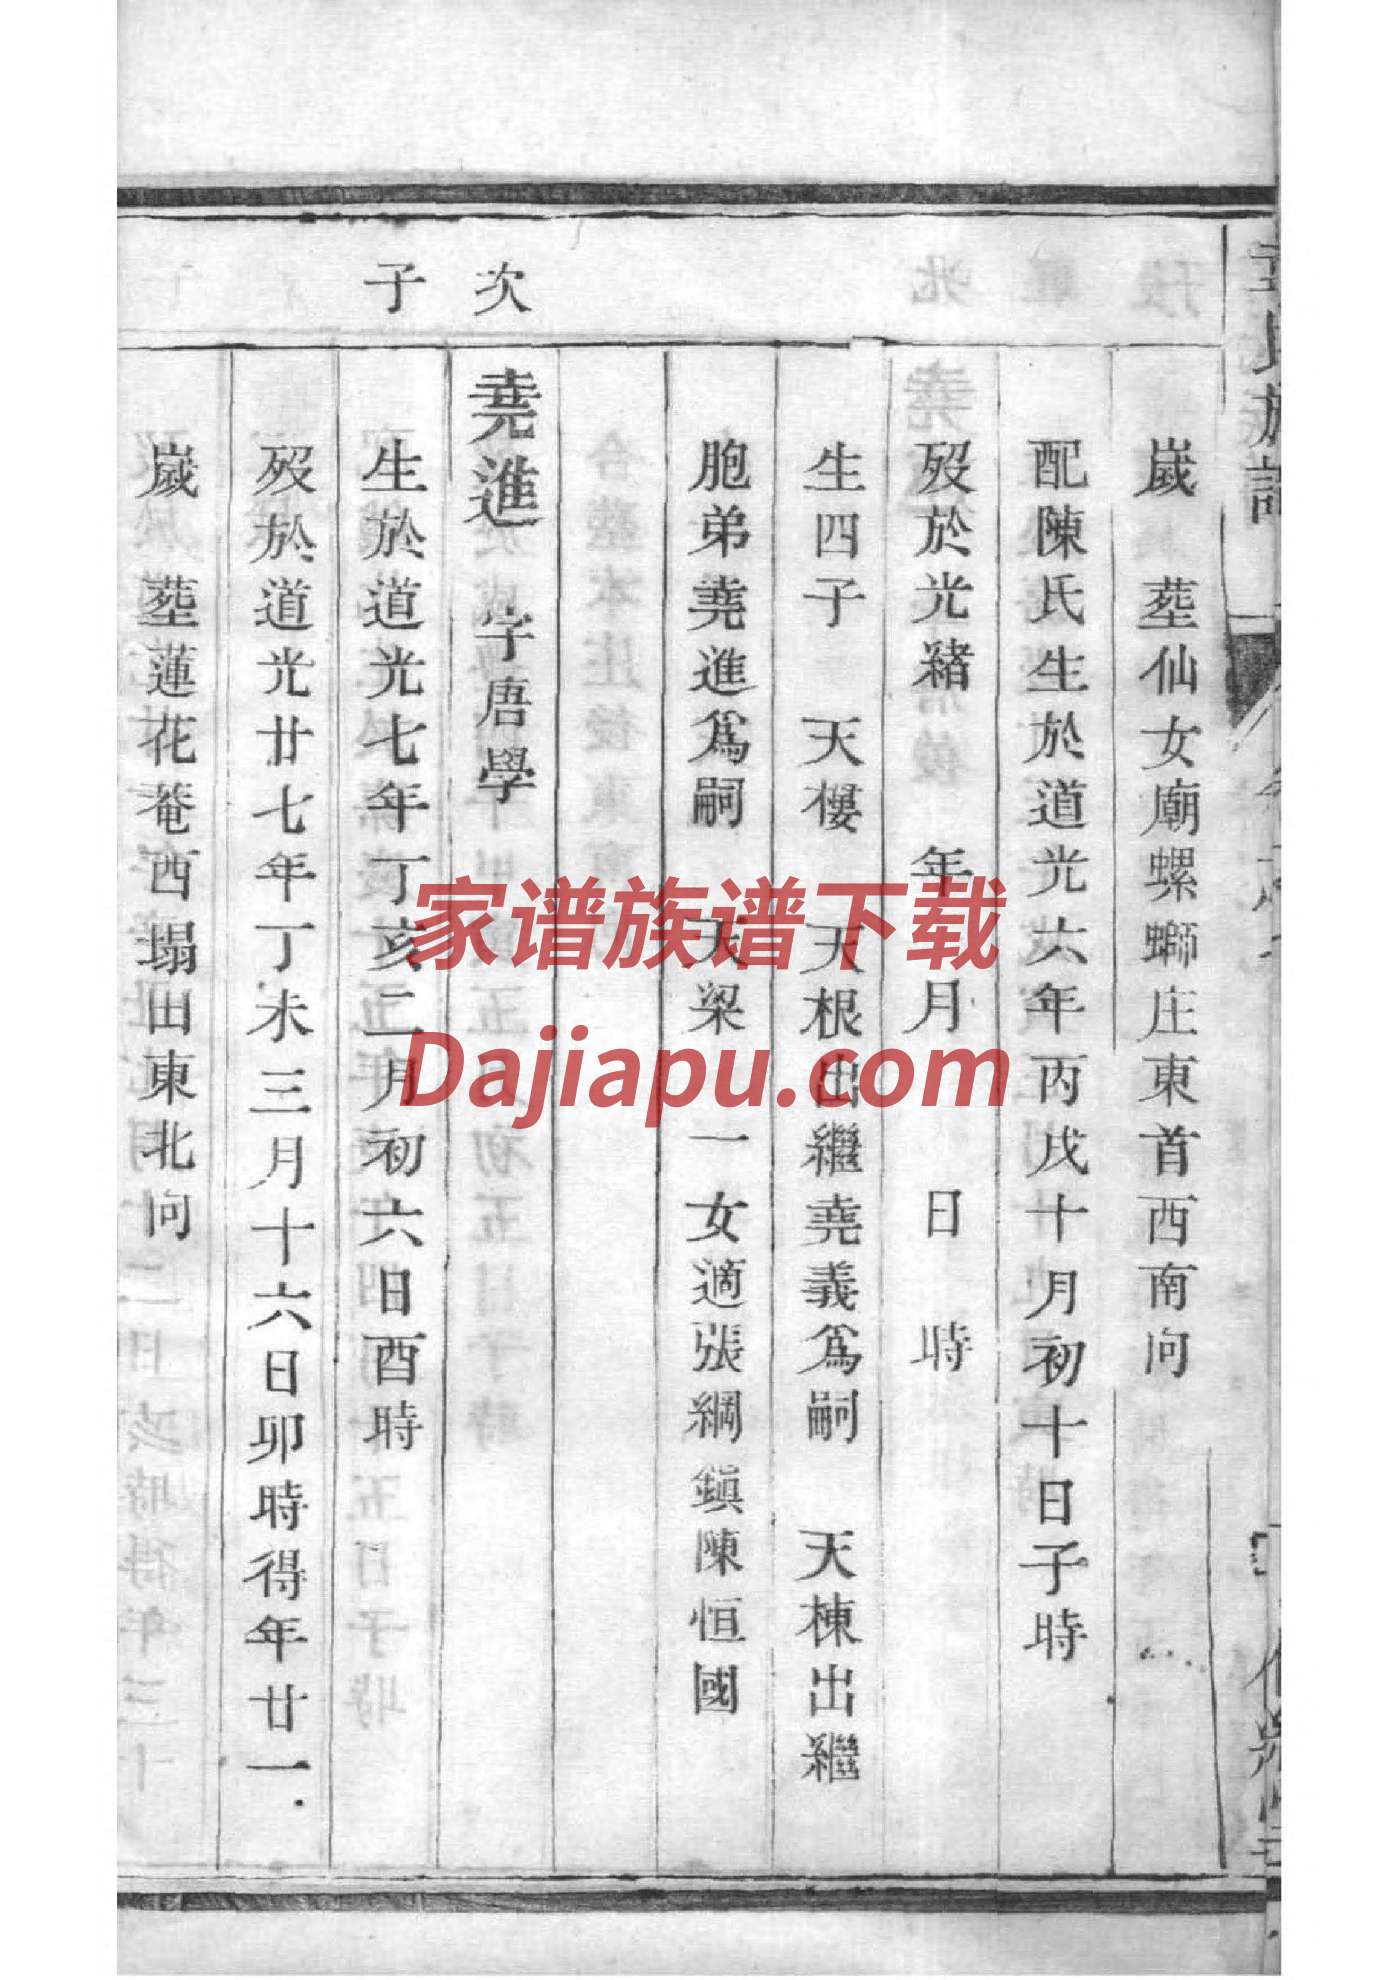 歲　葬仙女廟螺螄庄東首西南向
配陳氏生於道光六年丙戌十月初十日子時
歿於光緒　年　月　日　時
生四子　天樓　天根出繼堯義爲嗣　天棟出繼
胞弟堯進爲嗣　天梁　一女適張綱鎮陳恒國
次子
堯進　字唐學
生於道光七年丁亥二月初六日酉時
歿於道光廿七年丁未三月十六日卯時得年廿一
歲　葬蓮花菴西塌田東北向
氏族譜
家谱族谱下载
Dajiapu.com